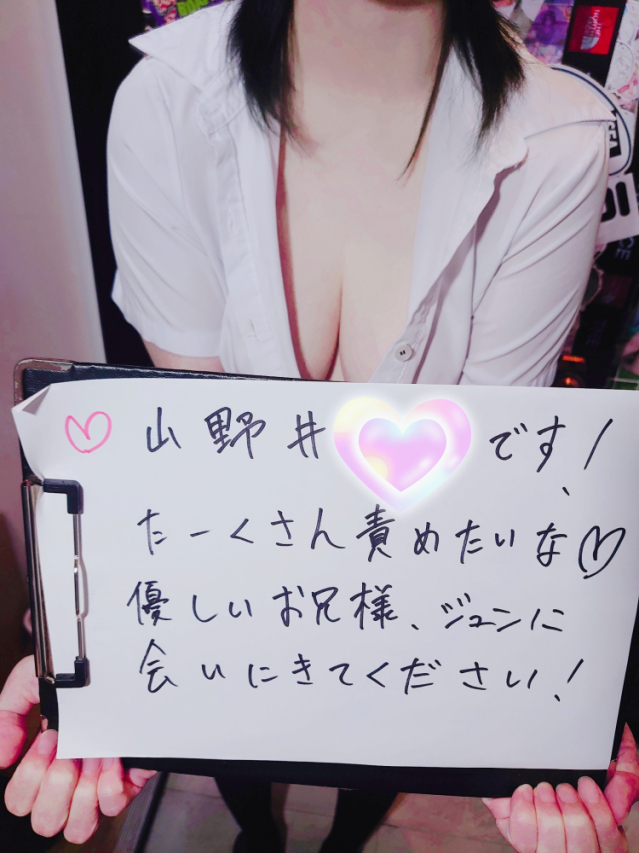 ♡ 山野井です!
たーくさん責めたいな♡
優しいお兄様、ジュンに
会いにきてください!